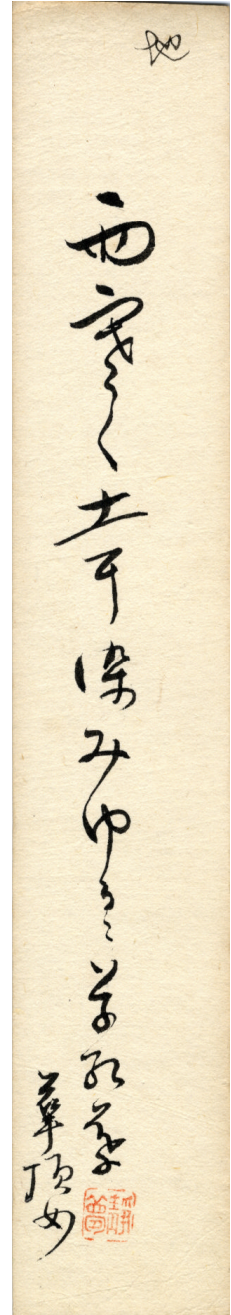 地
雨寒く土に染みゆく草紅葉
華頂女